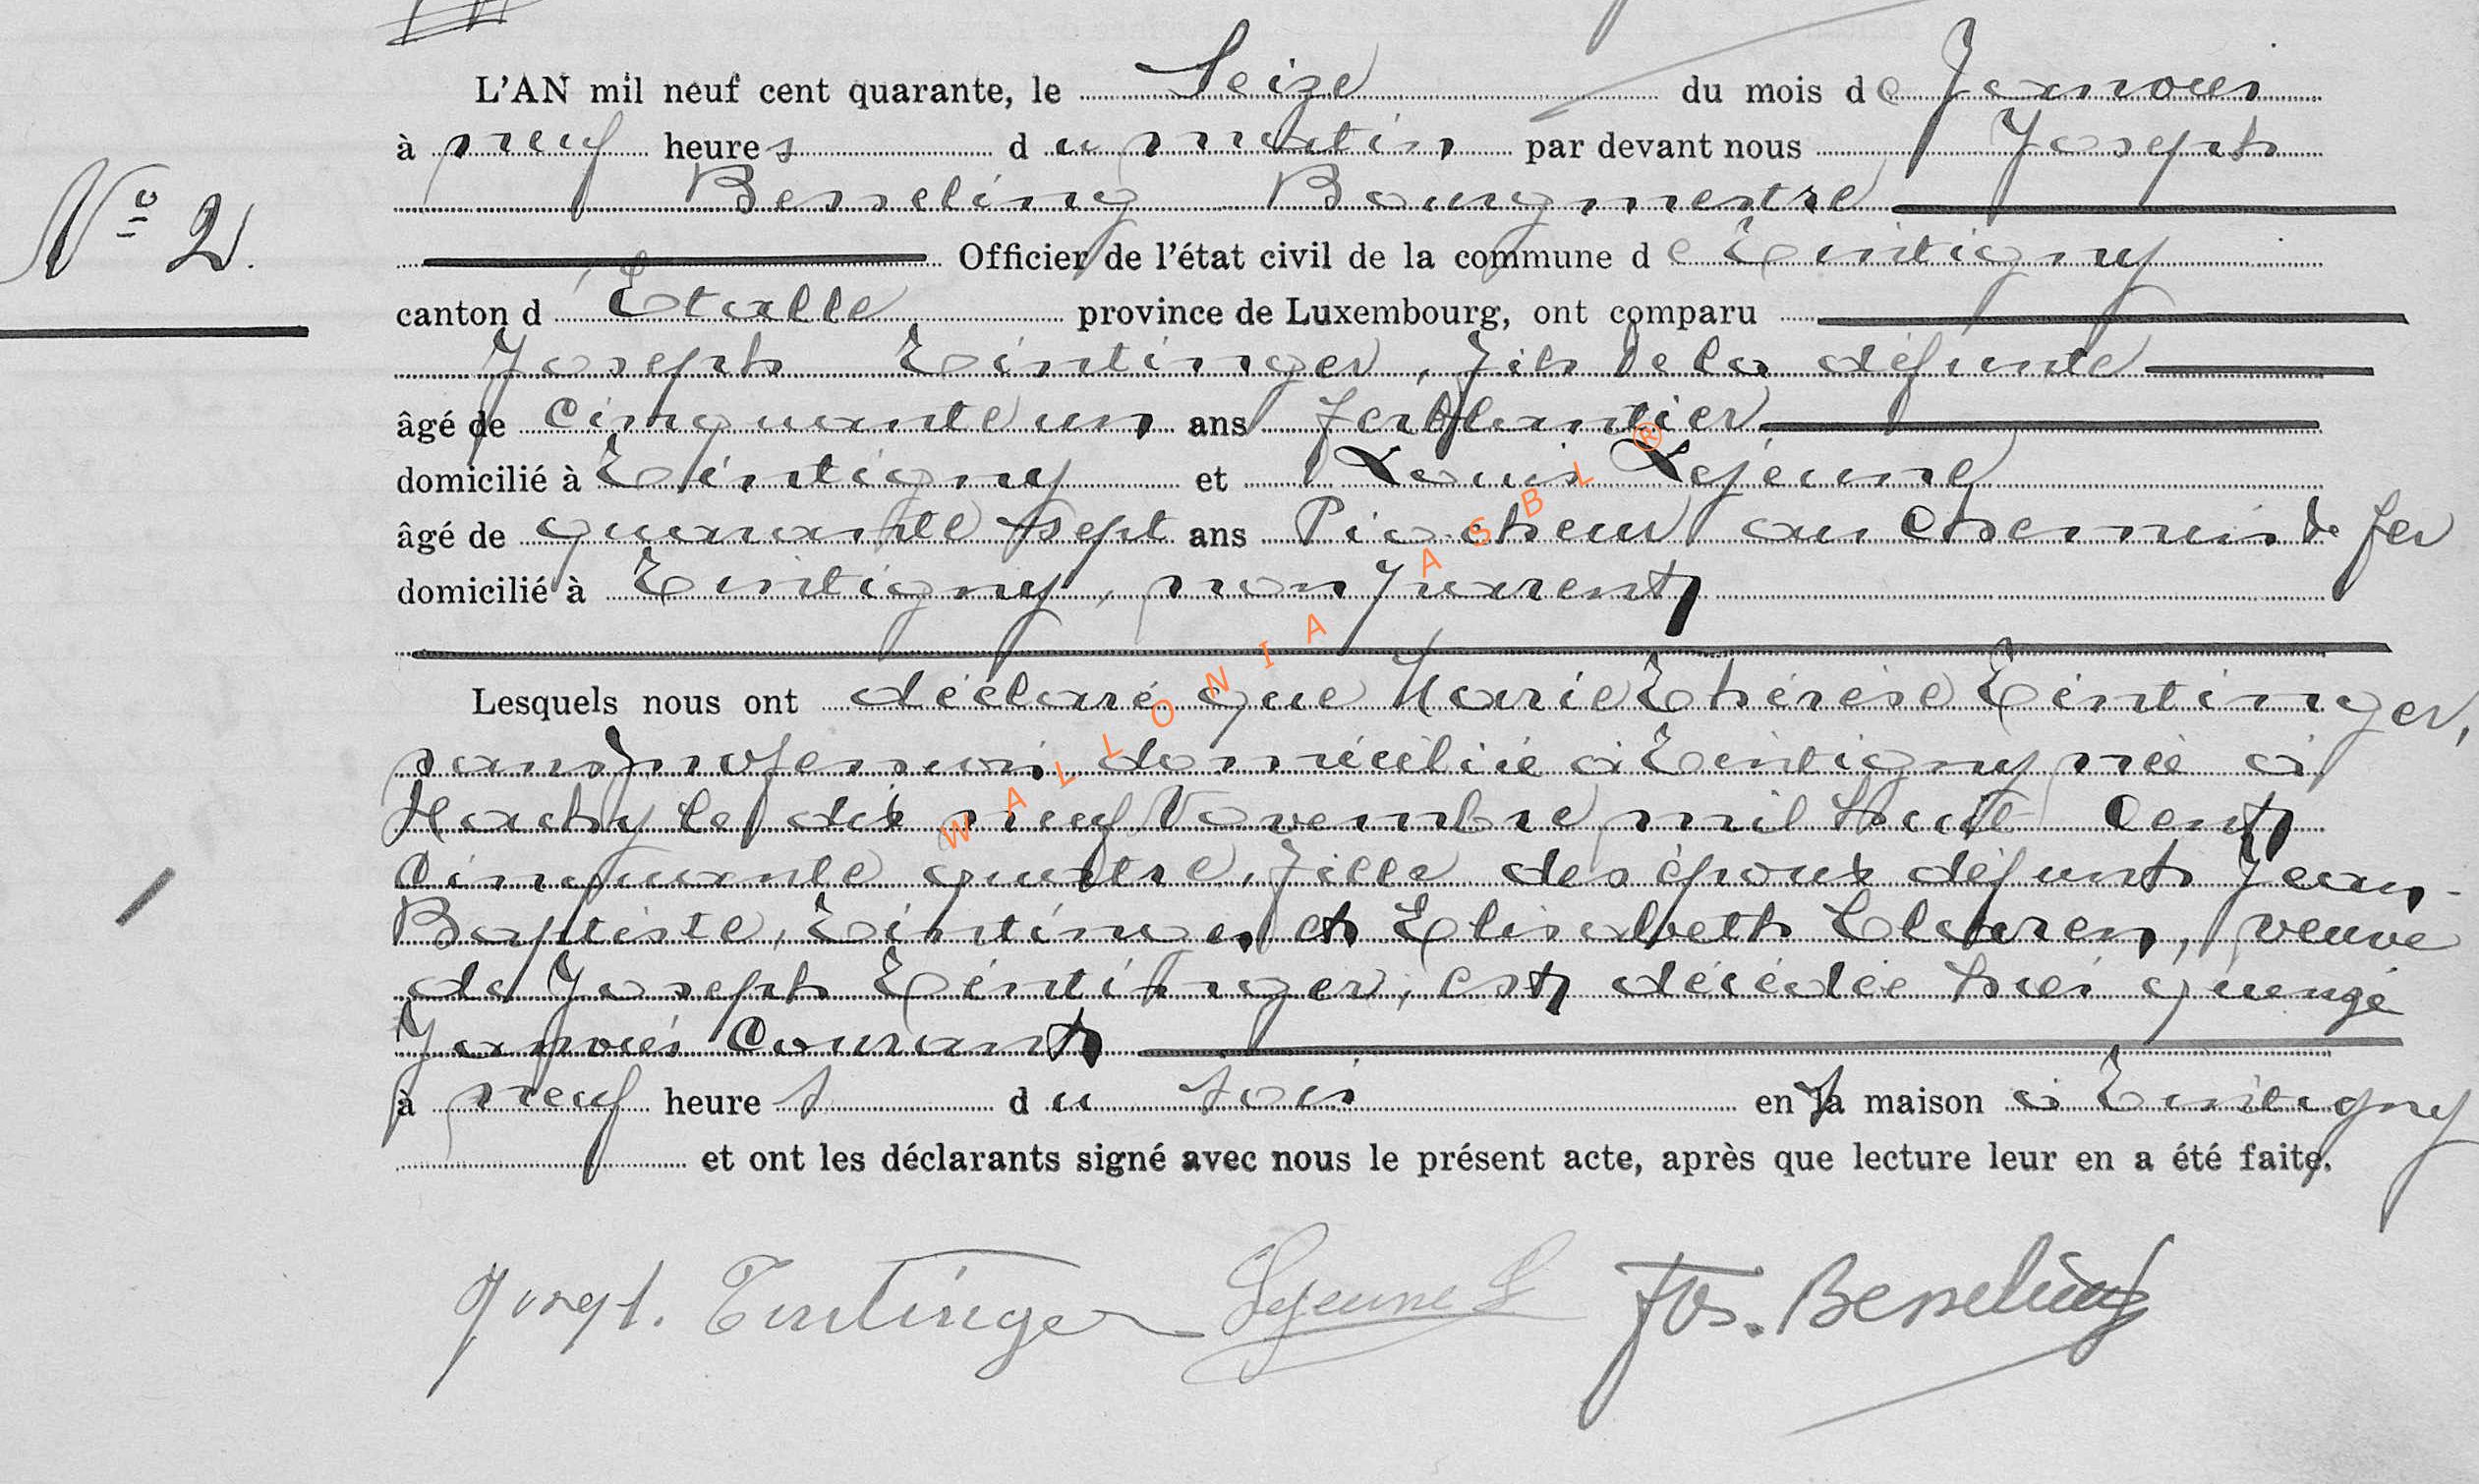 L'AN mil neuf cent quarante, le Seize du mois de Janvier
à neuf heures du matin par devant nous Joseph
Nº 2. Besseling Bourgmestre
Officier de l'état civil de la commune de Tintigny
canton d Etalle province de Luxembourg, ont comparu
Joseph Tintinger, fils de la défunte
âgé de cinquante un ans ferblantier
domicilié à Tintigny et Louis Lejeune
âgé de quarante sept ans Piocheur au Chemin de fer
domicilié à Tintigny, non parent
Lesquels nous ont déclaré que Marie Thérèse Tintinger,
sans profession, domiciliée à Tintigny née à
Hachy le dix neuf Novembre mil huit cent
cinquante quatre, fille des époux défunts Jean-
Baptiste, Tintinger et Elisabeth Claren, veuve
de Joseph Tintinger, est décédée hier quinze
Janvier courant
à neuf heures du soir en sa maison à Tintigny
et ont les déclarants signé avec nous le présent acte, après que lecture leur en a été faite.
Joseph. Tintinger Lejeune L Jos. Besseling
WALLONIA ASBL ®